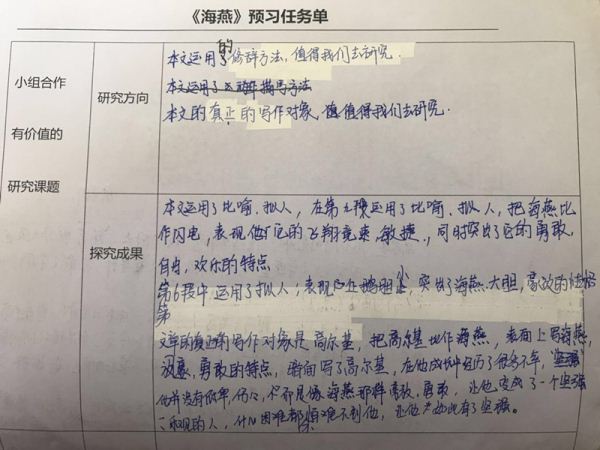 《海燕》预习任务单
小组合作
有价值的
研究课题
研究方向
本文运用了的修辞方法，值得我们去研究.
本文运用了 描写方法
本文的真正的写作对象，值得我们去研究.
探究成果
本文运用了比喻、拟人，在第 段运用了比喻、拟人，把海燕比
作闪电，表现他们的飞翔 敏捷，同时突出了它的勇敢，
自由，欢乐的特点
第6段中运用了拟人，表现 企鹅胆小，突出了海燕大胆，豪放的性格
第
文章的真正的写作对象是高尔基，把高尔基比作海燕，表面上写海燕，
勇敢的特点，暗面写了高尔基，在他成长中经历了很多不幸，坚强
他并没有 而是像海燕那样豪放、勇敢，让他变成了一个坚强
乐观的人，什么困难都 难不到他，让他 有了坚强。